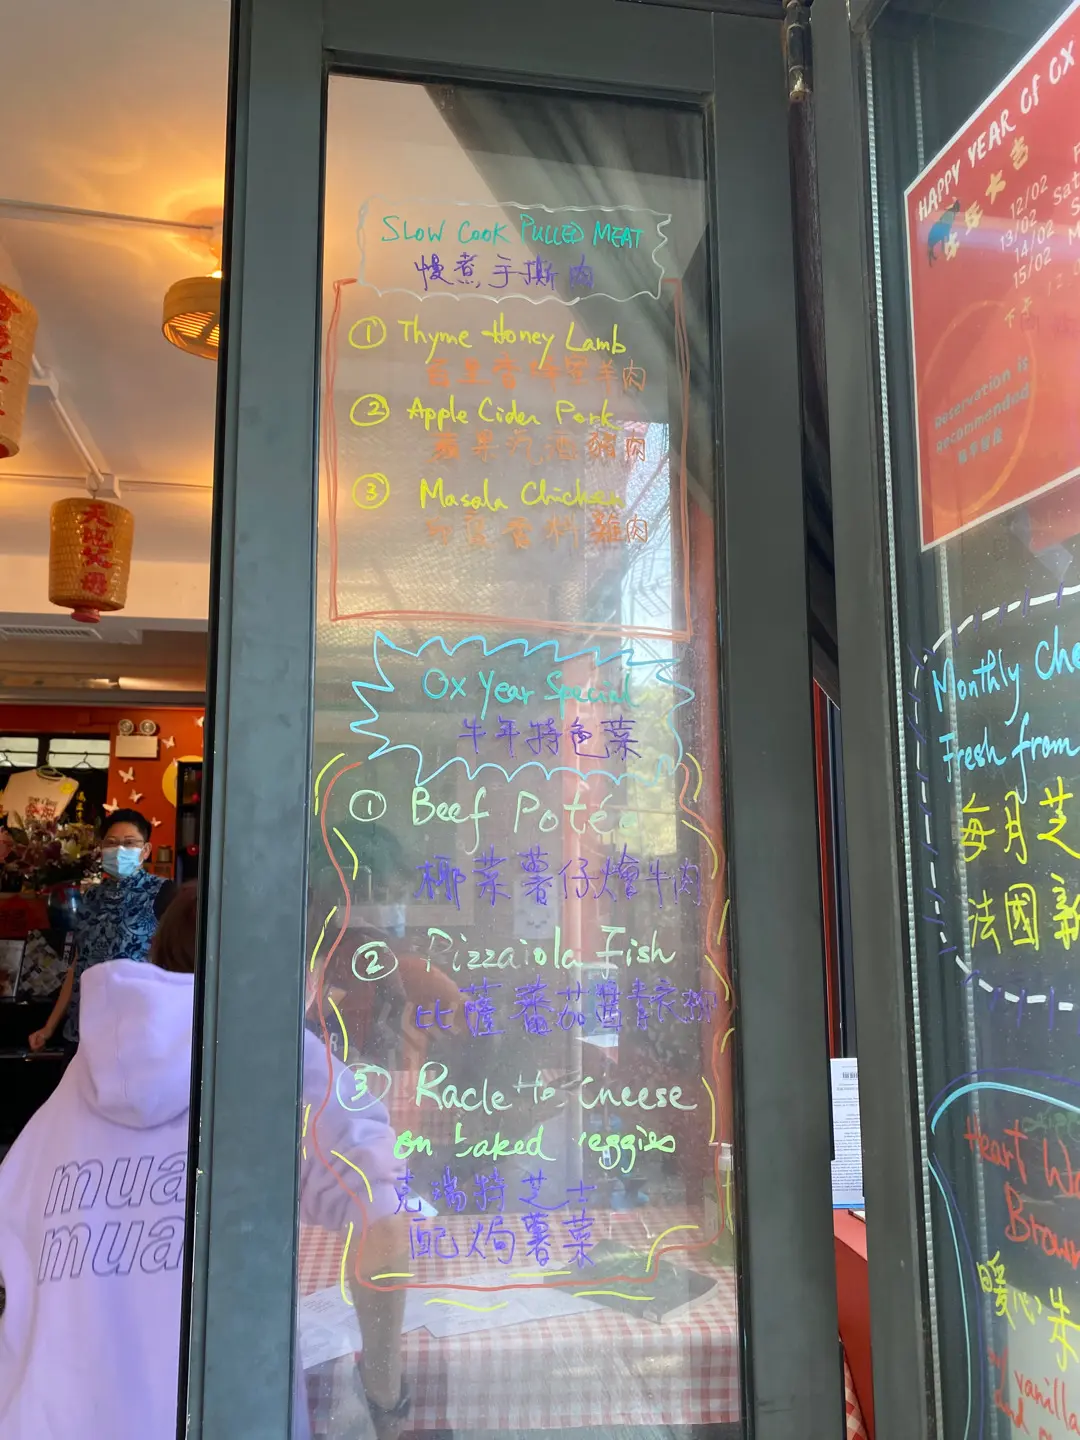 SLOW COOK PULLED MEAT
慢煮手撕肉
① Thyme Honey Lamb
百里香蜂蜜羊肉
② Apple Cider Pork
蘋果汽酒豬肉
③ Masala Chicken
印度香料雞肉
Ox Year Special
牛年特色菜
① Beef Potée
椰菜薯仔燴牛肉
② Pizzaiola Fish
比薩蕃茄醬青衣柳
③ Raclette Cheese
on baked veggies
克瑞特芝士
配焗薯菜
天地父母
mua
mua
HAPPY YEAR OF OX
大吉
12/02
13/02 Sat
14/02 S
15/02 M
Reservation is
Recommended
Monthly Che
Fresh from
每月芝
法國新
Heart Wa
Brown
暖心朱
w/ vanilla
and